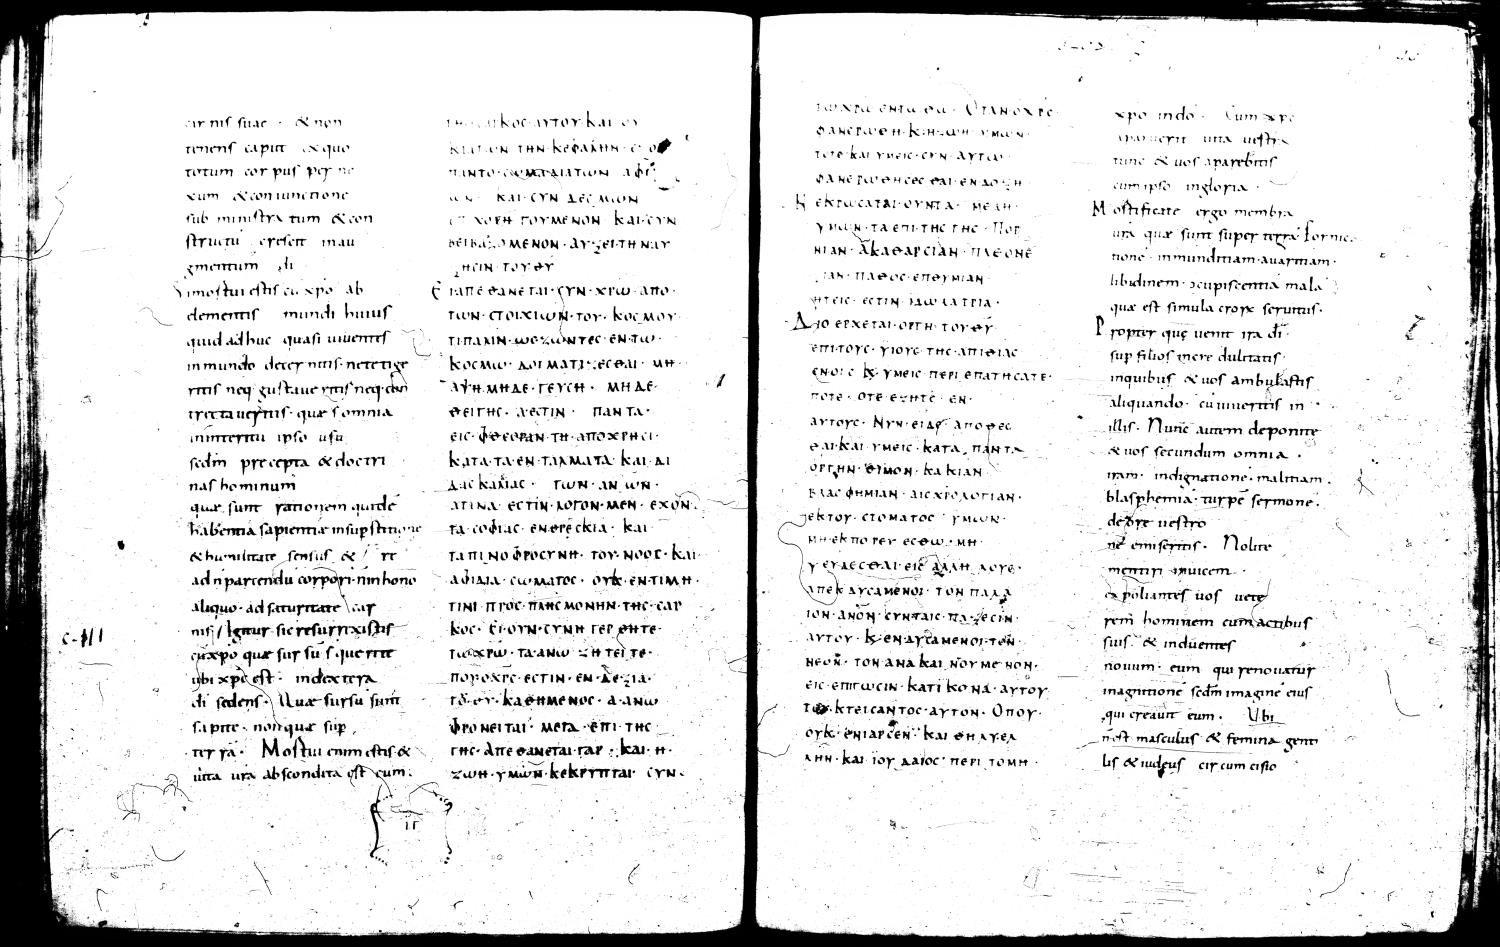 carnis suae · & non
tenens caput exquo
totum corpus per ne
xum & coniunctione
sub ministra tum & con
structu crescit in au
gmentum di
Simostui estis cu xpo ab
elementis mundi huius
quid adhuc quasi viventes
in mundo decer nitis · ne tetige
ritis neq; gustave ritis neq; con
trectaveritis · quae s omnia
in interitu ipso usu
sedm precepta & doctri
nas hominum
quae sunt rationem quidē
habentia sapientiae insupstitione
& humilitate sensus &
ad n parcendū corpori · nin hono
aliquo · ad saturitate car
nis / Igitur si cresurrexistis
cūxpo quae sur su s querite
ubi xpc est · indextera
di sedens · Quae sursū sunt
sapite · non quae sup
terra · Mostui enim estis &
uita ura abscondita est cum ·
c-III
ΚΟC · ΑΥΤΟΥ · ΚΑΙ ΟΥ
ΤΗΝ ΚΕΦΑΛΗΝ · ΕΞ ΟΥ
ΚΑΙ · CΥΝ ΔΕCΜΩΝ
ΧΟΡΗΓΟΥΜΕΝΟΝ ΚΑΙ · CΥΝ
ΒΕΙΒΑΖΟΜΕΝΟΝ · ΑΥΞΕΙ ΤΗΝ ΑΥ
ΞΗCΙΝ · ΤΟΥ ΘΥ
ΕΙ ΑΠΕΘΑΝΕΤΑΙ · CΥΝ · ΧΡΩ · ΑΠΟ ·
ΤΩΝ · CΤΟΙΧΙΩΝ · ΤΟΥ · ΚΟCΜΟΥ ·
ΤΙ ΠΑΛΙΝ · ΩC ΖΩΝΤΕC · ΕΝ · ΤΩ ·
ΚΟCΜΩ · ΔΟΓΜΑΤΙΖΕCΘΑΙ · ΜΗ ·
ΑΨΗ · ΜΗΔΕ · ΓΕΥCΗ · ΜΗΔΕ ·
ΘΕΙΓΗC · Α · ΕCΤΙΝ · ΠΑΝΤΑ ·
ΕΙC · ΦΘΕΟΡΑΝ · ΤΗ · ΑΠΟΧΡΗCΙ ·
ΚΑΤΑ · ΤΑ · ΕΝΤΑΛΜΑΤΑ · ΚΑΙ · ΔΙ
ΔΑCΚΑΛΙΑC · ΤΩΝ · ΑΝΩΝ ·
ΑΤΙΝΑ · ΕCΤΙΝ · ΛΟΓΟΝ · ΜΕΝ · ΕΧΟΝ
ΤΑ · CΟΦΙΑC · ΕΝ ΘΡΕCΚΙΑ · ΚΑΙ ·
ΤΑΠΙΝΟΦΡΟCΥΝΗ · ΤΟΥ · ΝΟΟC · ΚΑΙ ·
ΑΦΙΔΙΑ · CΩΜΑΤΟC · ΟΥΚ · ΕΝ · ΤΙΜΗ ·
ΤΙΝΙ · ΠΡΟC · ΠΛΗCΜΟΝΗΝ · ΤΗC · CΑΡ
ΚΟC · ΕΙ · ΟΥΝ · CΥΝΗΓΕΡΘΗΤΕ ·
ΤΩ · ΧΡΩ · ΤΑ · ΑΝΩ · ΖΗΤΕΙΤΕ ·
ΠΟΥ · Ο ΧΡC · ΕCΤΙΝ · ΕΝ · ΔΕΞΙΑ ·
ΤΟΥ · ΘΥ · ΚΑΘΗΜΕΝΟC · Α · ΑΝΩ
ΦΡΟΝΕΙΤΑΙ · ΜΕΤΑ · ΕΠΙ · ΤΗC ·
ΓΗC · ΑΠΕΘΑΝΕΤΑΙ · ΓΑΡ · ΚΑΙ · Η ·
ΖΩΗ · ΥΜΩΝ · ΚΕΚΡΥΠΤΑΙ · CΥΝ ·
ΙΓ
ΤΩ ΧΡΩ ΕΝ ΤΩ ΘΩ · ΟΤΑΝ · Ο ΧΡC ·
ΦΑΝΕΡΩΘΗ · Κ · Η · ΖΩΗ · ΥΜΩΝ ·
ΤΟΤΕ · ΚΑΙ · ΥΜΕΙC · CΥΝ · ΑΥΤΩ ·
ΦΑΝΕΡΩΘΗCΕCΘΑΙ · ΕΝ ΔΟΞΗ
ΝΕΚΡΩCΑΤΑΙ · ΟΥΝ · ΤΑ · ΜΕΛΗ ·
ΥΜΩΝ · ΤΑ ΕΠΙ · ΤΗC ΓΗC · ΠΟΡ
ΝΙΑΝ · ΑΚΑΘΑΡCΙΑΝ · ΠΛΕΟΝΕ
ΞΙΑΝ · ΠΑΘΟC · ΕΠΘΥΜΙΑΝ ·
ΗΤΕΙC · ΕCΤΙΝ · ΙΔΩΛΑΤΡΙΑ ·
ΔΙΟ ΕΡΧΕΤΑΙ · ΟΡΓΗ · ΤΟΥ ΘΥ
ΕΠΙ · ΤΟΥC · ΥΙΟΥC · ΤΗC · ΑΠΙΘΙΑC
ΕΝ ΟΙC · Κ · ΥΜΕΙC · ΠΕΡΙΕΠΑΤΗCΑΤΕ ·
ΠΟΤΕ · ΟΤΕ · ΕΖΗΤΕ · ΕΝ ·
ΑΥΤΟΥC · ΝΥΝ · ΕΙΔΕ · ΑΠΟΘΕC
ΘΑΙ · ΚΑΙ · ΥΜΕΙC · ΚΑΤΑ · ΠΑΝΤΑ
ΟΡΓΗΝ · ΘΥΜΟΝ · ΚΑΚΙΑΝ ·
ΒΛΑCΦΗΜΙΑΝ · ΑΙCΧΡΟΛΟΓΙΑΝ ·
ΕΚ ΤΟΥ · CΤΟΜΑΤΟC · ΥΜΩΝ ·
ΜΗ · ΕΚΠΟΡΕΥΕCΘΩ · ΜΗ ·
ΨΕΥΔΕCΘΑΙ · ΕΙC ΑΛΛΗΛΟΥC ·
ΑΠΕΚΔΥCΑΜΕΝΟΙ · ΤΟΝ ΠΑΛΑ
ΙΟΝ · ΑΝΟΝ · CΥΝ ΤΑΙC · ΠΑΞΕCΙΝ ·
ΑΥΤΟΥ · Κ · ΕΝΔΥCΑΜΕΝΟΙ · ΤΟΝ ·
ΝΕΟΝ · ΤΟΝ ΑΝΑΚΑΙΝΟΥΜΕΝΟΝ ·
ΕΙC · ΕΠΙΓΝΩCΙΝ · ΚΑΤ ΙΚΟΝΑ · ΑΥΤΟΥ
ΤΟΥ ΚΤΕΙCΑΝΤΟC · ΑΥΤΟΝ · ΟΠΟΥ ·
ΟΥΚ · ΕΝΙ ΑΡCΕΝ · ΚΑΙ · ΘΗΛΥ · ΕΛ
ΛΗΝ · ΚΑΙ · ΙΟΥΔΑΙΟC · ΠΕΡΙΤΟΜΗ ·
xpo in do · Cum xpc
aparuerit uita uestra
tunc & uos aparebitis
cum ipso in gloria ·
Mostificate ergo membra
ura quae sunt super terra fornica
tione · inmunditiam · avaritiam ·
libidinem · ɔcupiscentia mala
quae est simulacrorx servitus ·
Propter que venit ira di ·
sup filios incredulitatis ·
in quibus & uos ambulastis
aliquando · cu viveretis in ·
illis · Nunc autem deponite
& uos secundum omnia ·
iram · indignatione · malitiam ·
blasphemia · turpe sermone ·
de ore vestro
ne emiseritis · Nolite
mentiri invicem ·
expoliantes vos vete
rem hominem cum actibus
suis · & induentes
novum · eum qui renovatur
in agnitione sedm imagine eius
qui creavit eum · Ubi
n est masculus & femina genti
lis & iudeus circumcisio